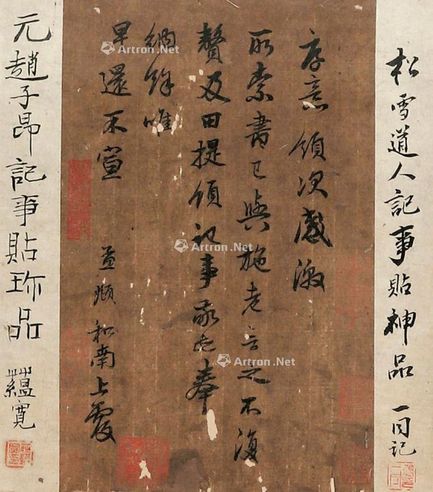 松雪道人記事貼神品 一同記
存意領次感激
所索書已與施老言之不復
贅及田提領記事 已奉
納餘唯
早還不宣 孟頫和南上覆
元趙子昂記事貼珎品 蘊寬
Artron.Net
Artron.Net
Artron.Net